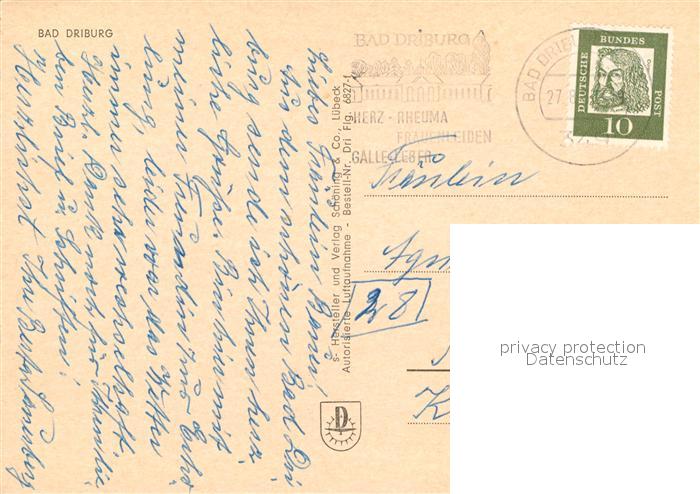 BAD DRIBURG
Liebes Fräulein
Aus dem schönen Bad Dri
burg sende ich Ihnen herz
liche Grüße. Bin hier mit
meiner Freundin zur Erho
lung, leider war das Wetter
immer sehr wechselhaft.
Herzl. Dank noch für Ihren lie
ben Brief u. Schriften!
Herzlichst Ihre
s- Hersteller und Verlag Schöning & Co., Lübeck
Autorisierte Luftaufnahme - Bestell-Nr. Dri Flg. 6827-1
D
BAD DRIBURG
HERZ - RHEUMA
FRAUENLEIDEN
GALLE-LEBER
BAD DRIB
27.8
DEUTSCHE BUNDES POST
10
Fräulein
28
K
privacy protection
Datenschutz